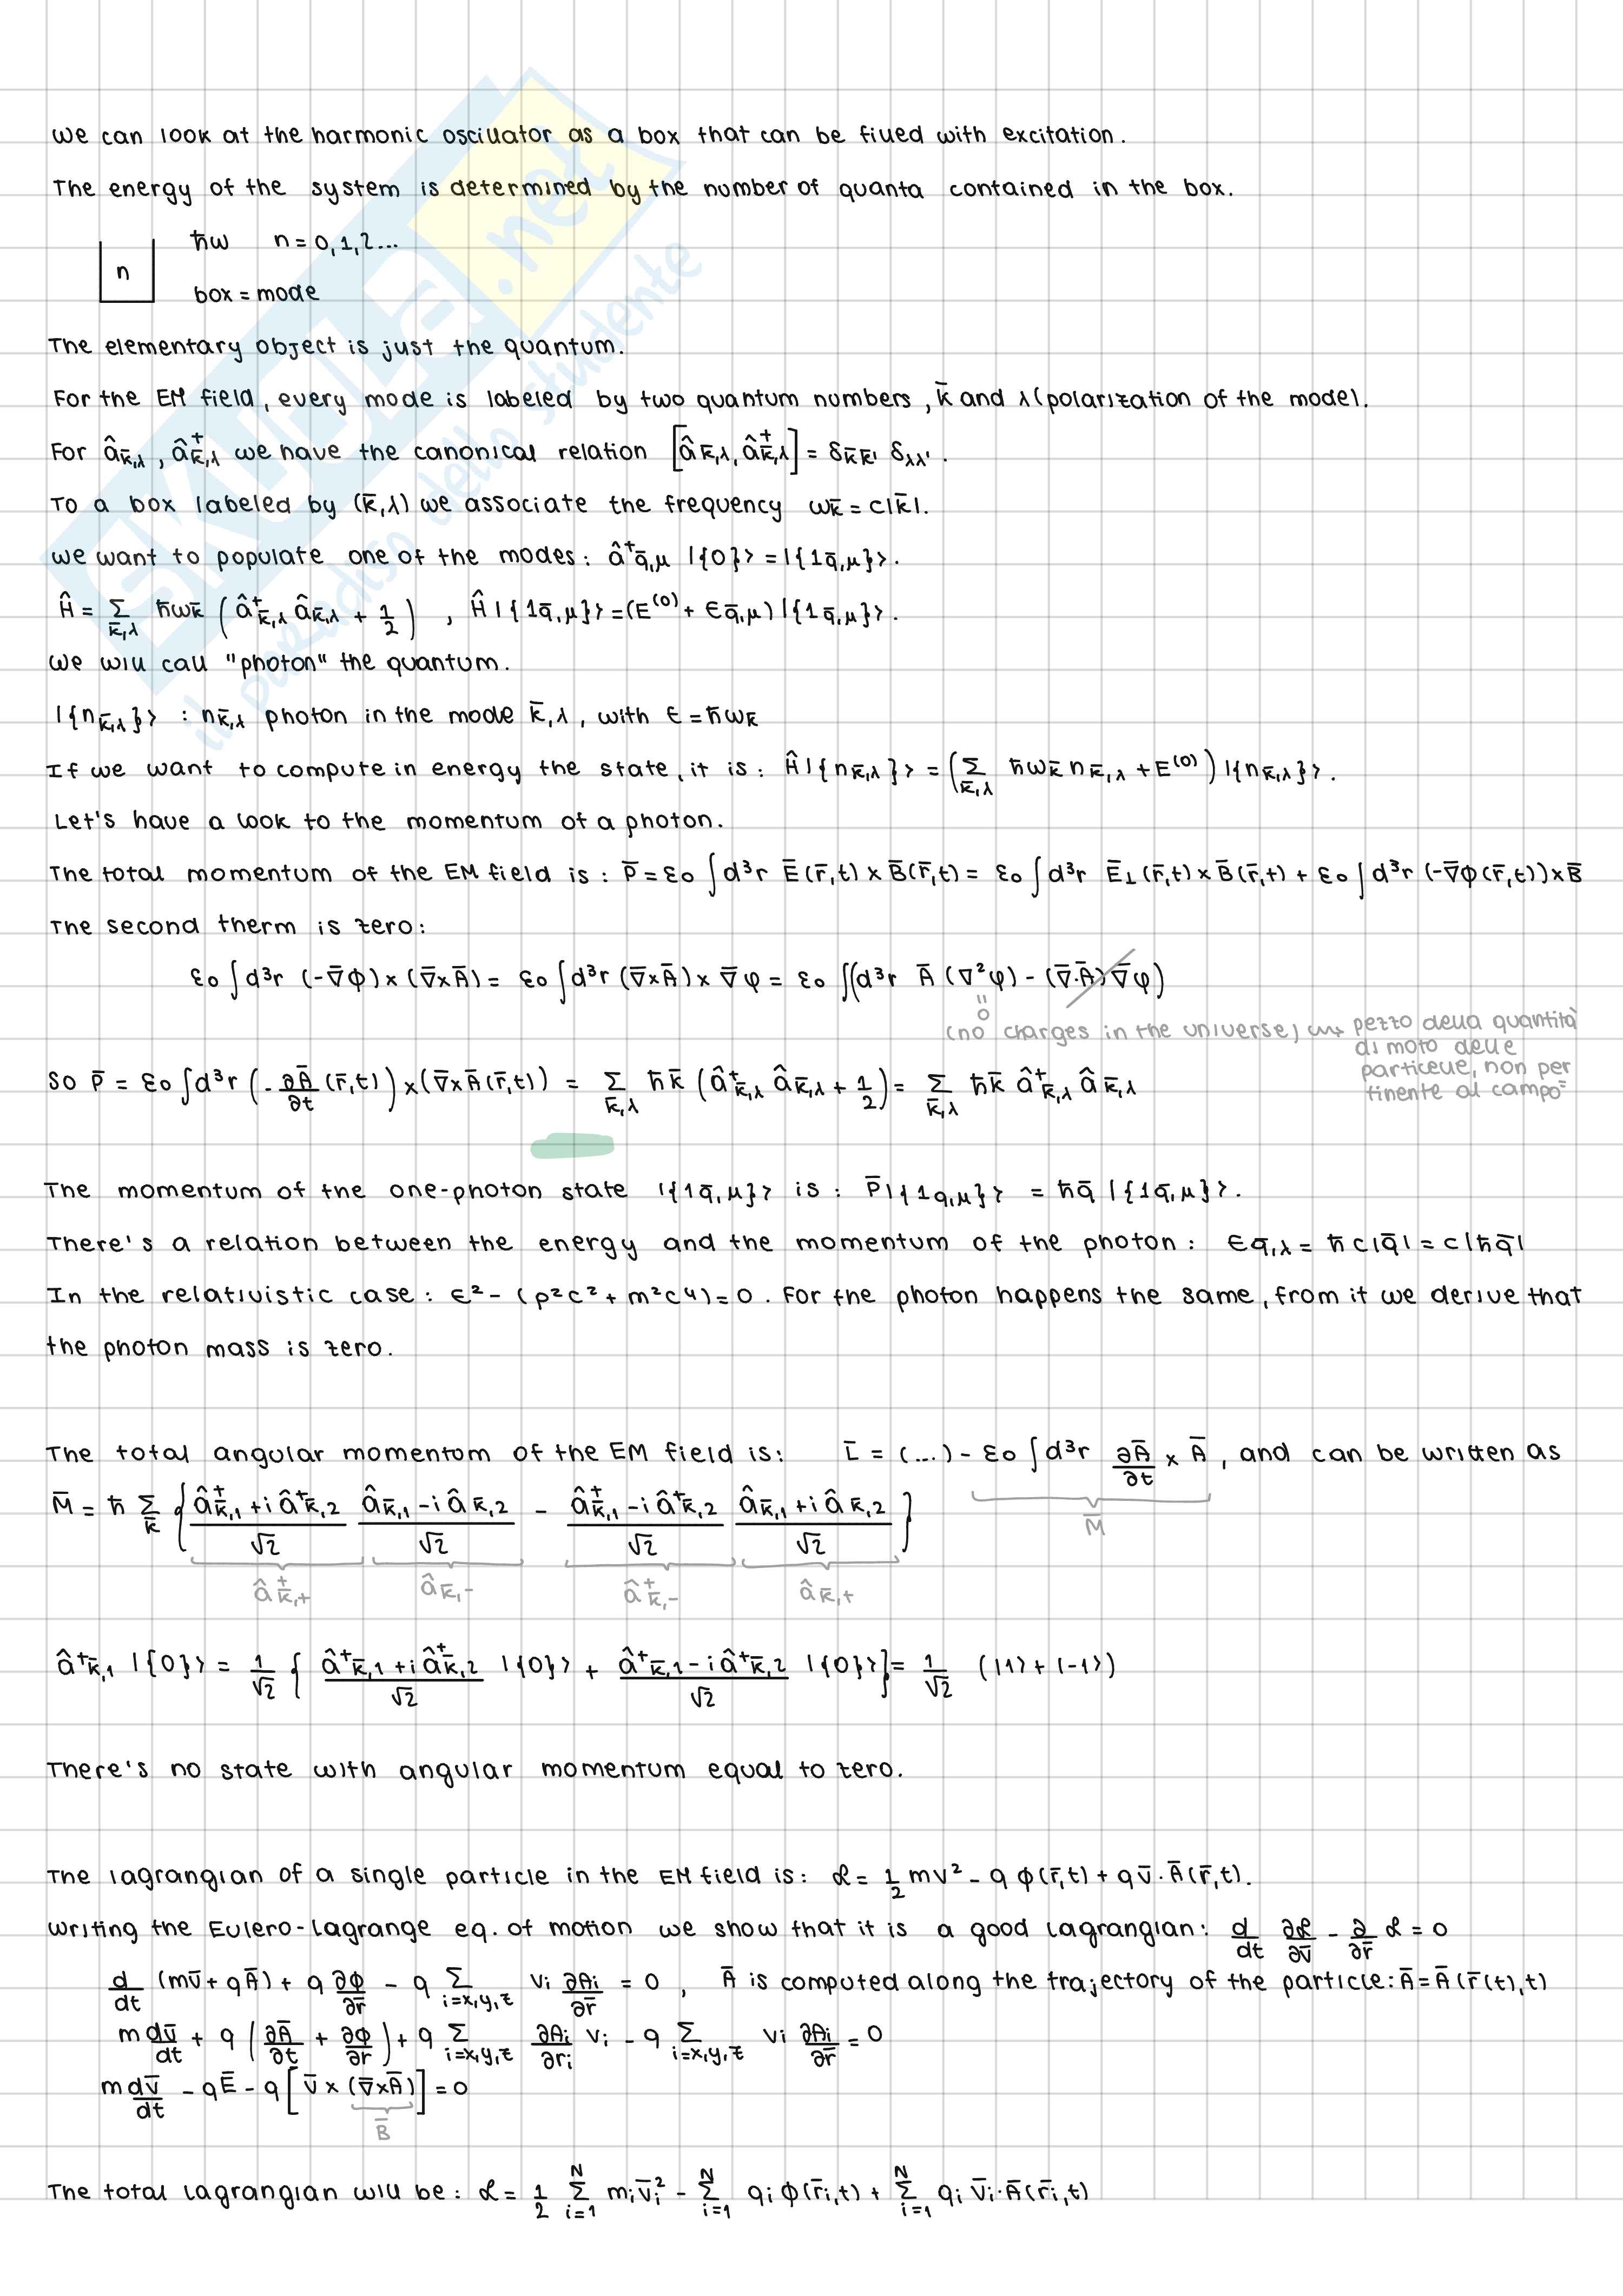 We can look at the harmonic oscillator as a box that can be filled with excitation.
The energy of the system is determined by the number of quanta contained in the box.
ħω n = 0,1,2...
n
box = mode
The elementary object is just the quantum.
For the EM field, every mode is labeled by two quantum numbers, k̄ and λ (polarization of the mode).
For â_k̄,λ , â⁺_k̄,λ we have the canonical relation [â_k̄,λ, â⁺_k̄,λ] = δ_k̄k̄' δ_λλ' .
To a box labeled by (k̄,λ) we associate the frequency ω_k̄ = c|k̄|.
We want to populate one of the modes: â⁺_q̄,μ |{0}> = |{1_q̄,μ}>.
Ĥ = Σ_k̄,λ ħω_k̄ (â⁺_k̄,λ â_k̄,λ + 1/2) , Ĥ|{1_q̄,μ}> = (E⁽⁰⁾ + ε_q̄,μ)|{1_q̄,μ}>.
We will call "photon" the quantum.
|{n_k̄,λ}> : n_k̄,λ photon in the mode k̄,λ, with ε = ħω_k̄
If we want to compute in energy the state, it is: Ĥ|{n_k̄,λ}> = (Σ_k̄,λ ħω_k̄ n_k̄,λ + E⁽⁰⁾)|{n_k̄,λ}>.
Let's have a look to the momentum of a photon.
The total momentum of the EM field is: P̄ = ε₀ ∫d³r Ē(r̄,t) × B̄(r̄,t) = ε₀ ∫d³r Ē⊥(r̄,t) × B̄(r̄,t) + ε₀ ∫d³r (-∇̄φ(r̄,t)) × B̄
The second therm is zero:
ε₀ ∫d³r (-∇̄φ) × (∇̄×Ā) = ε₀ ∫d³r (∇̄×Ā) × ∇̄φ = ε₀ ∫(d³r Ā (∇²φ) - (∇̄·Ā) ∇̄φ)
"
0
(no charges in the universe) ⟿ pezzo della quantità
di moto delle
particelle, non per
tinente al campo=
So P̄ = ε₀ ∫d³r (-∂Ā/∂t (r̄,t)) × (∇̄×Ā(r̄,t)) = Σ_k̄,λ ħk̄ (â⁺_k̄,λ â_k̄,λ + 1/2) = Σ_k̄,λ ħk̄ â⁺_k̄,λ â_k̄,λ
The momentum of the one-photon state |{1_q̄,μ}> is: P̄|{1_q,μ}> = ħq̄ |{1_q̄,μ}>.
There's a relation between the energy and the momentum of the photon: ε_q̄,λ = ħc|q̄| = c|ħq̄|
In the relativistic case: ε² - (p²c² + m²c⁴) = 0. For the photon happens the same, from it we derive that
the photon mass is zero.
The total angular momentum of the EM field is: L̄ = (...) - ε₀ ∫d³r ∂Ā/∂t × Ā , and can be written as
M̄
M̄ = ħ Σ_k̄ { (â⁺_k̄,1 + i â⁺_k̄,2)/√2 (â_k̄,1 - i â_k̄,2)/√2 - (â⁺_k̄,1 - i â⁺_k̄,2)/√2 (â_k̄,1 + i â_k̄,2)/√2 }
â⁺_k̄,+ â_k̄,- â⁺_k̄,- â_k̄,+
â⁺_k̄,1 |{0}> = 1/√2 { (â⁺_k̄,1 + i â⁺_k̄,2)/√2 |{0}> + (â⁺_k̄,1 - i â⁺_k̄,2)/√2 |{0}>} = 1/√2 (|1> + |-1>)
There's no state with angular momentum equal to zero.
The lagrangian of a single particle in the EM field is: ℒ = 1/2 mv² - q φ(r̄,t) + q v̄·Ā(r̄,t).
Writing the Eulero-Lagrange eq. of motion we show that it is a good lagrangian: d/dt ∂ℒ/∂v̄ - ∂/∂r̄ ℒ = 0
d/dt (mv̄ + qĀ) + q ∂φ/∂r̄ - q Σ_i=x,y,z vi ∂Ai/∂r̄ = 0 , Ā is computed along the trajectory of the particle: Ā = Ā(r̄(t),t)
m dv̄/dt + q (∂Ā/∂t + ∂φ/∂r̄) + q Σ_i=x,y,z ∂Ai/∂ri vi - q Σ_i=x,y,z vi ∂Ai/∂r̄ = 0
m dv̄/dt - qĒ - q [v̄ × (∇̄×Ā)] = 0
B̄
The total lagrangian will be: ℒ = 1/2 Σ_i=1^N mi v̄i² - Σ_i=1^N qi φ(r̄i,t) + Σ_i=1^N qi v̄i·Ā(r̄i,t)
SKUOLA.net
il paradiso dello studente